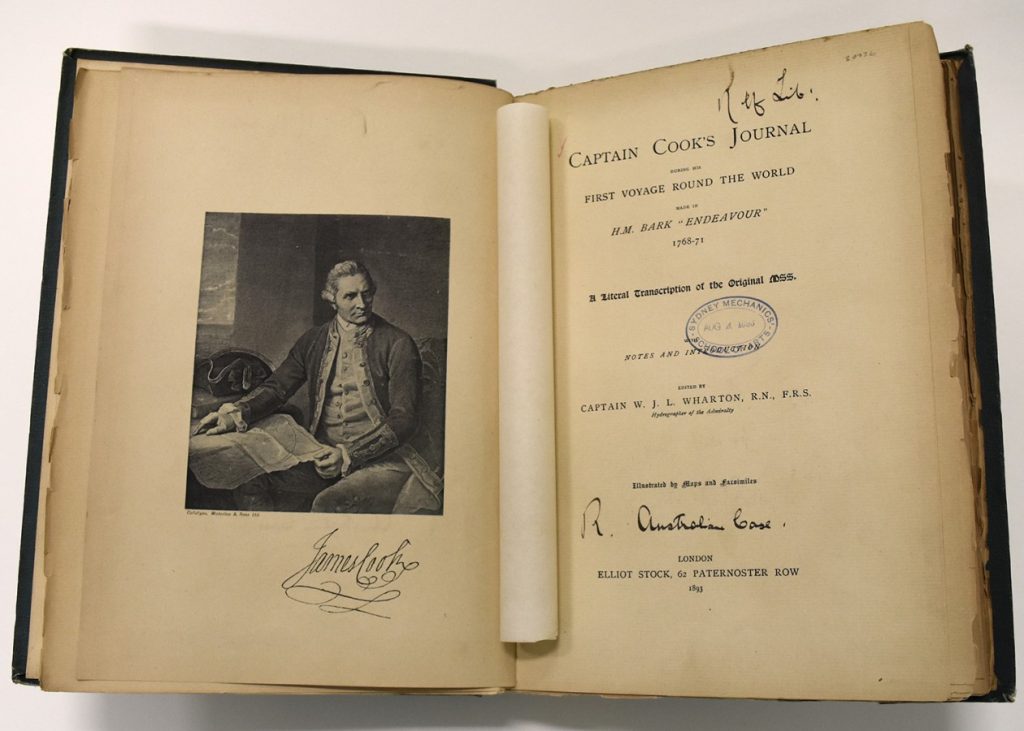 James Cook
Ref Lib.
CAPTAIN COOK'S JOURNAL
DURING HIS
FIRST VOYAGE ROUND THE WORLD
MADE IN
H.M. BARK "ENDEAVOUR"
1768-71
A Literal Transcription of the Original MSS.
SYDNEY MECHANICS'
SCHOOL ARTS
NOTES AND INTRODUCTION
EDITED BY
CAPTAIN W. J. L. WHARTON, R.N., F.R.S.
Hydrographer of the Admiralty
Illustrated by Maps and Facsimiles
R. Australian Case.
LONDON
ELLIOT STOCK, 62 PATERNOSTER ROW
1893